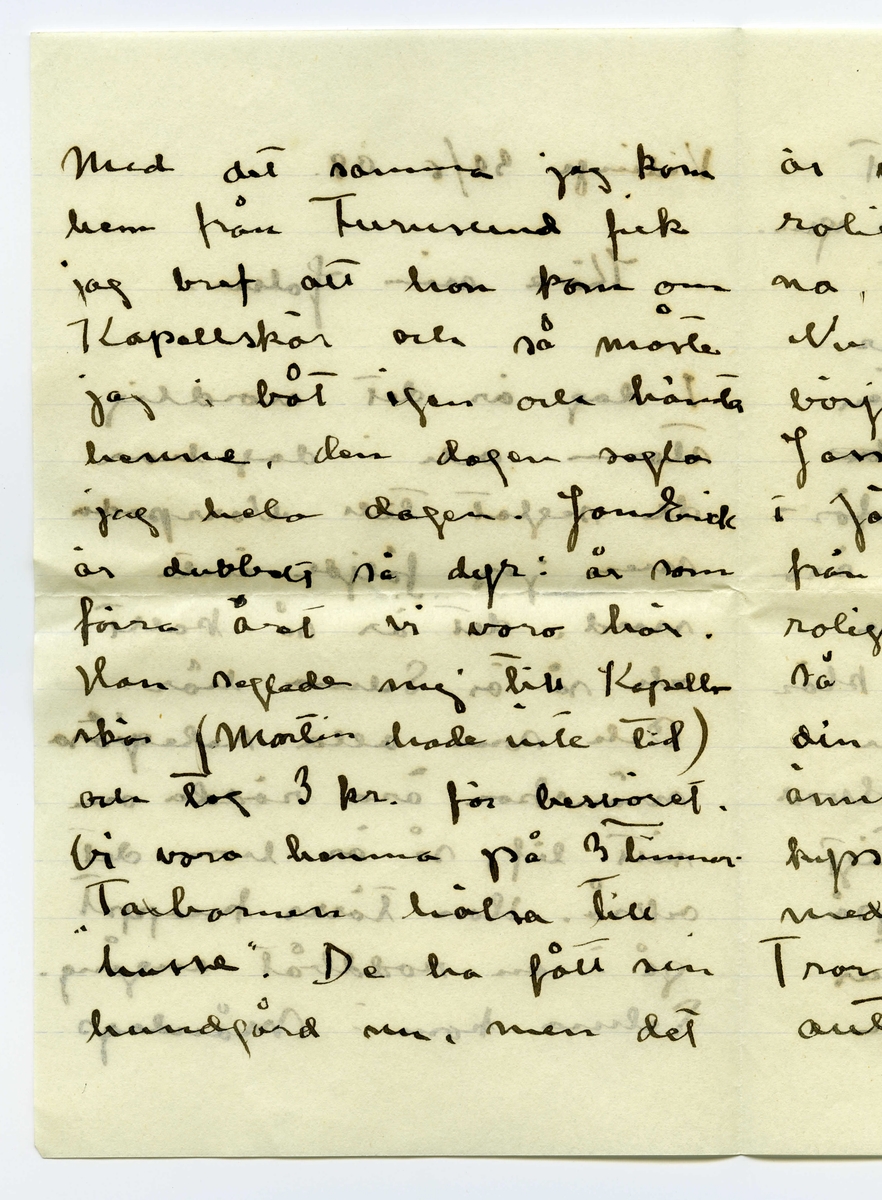 Med det samma jag kom
hem från Furusund fick
jag bref att hon kom om
Kapellskär och så måste
jag i båt igen och hämta
henne, den dagen segla
jag hela dagen. Jan Erick
är dubbelt så dyr i år som
förra året vi voro här.
Han seglade mig till Kapell-
skär (Martin hade inte tid)
och tog 3 kr. för besväret.
(Vi voro hemma på 3 timmar.
Taxbarnen hälsa till
"husse". De ha fått sin
hundgård nu, men det
är
rolig
na,
Nu
börj
Jan
i
från
rolig
så
din
änn
kyss
med
Tror